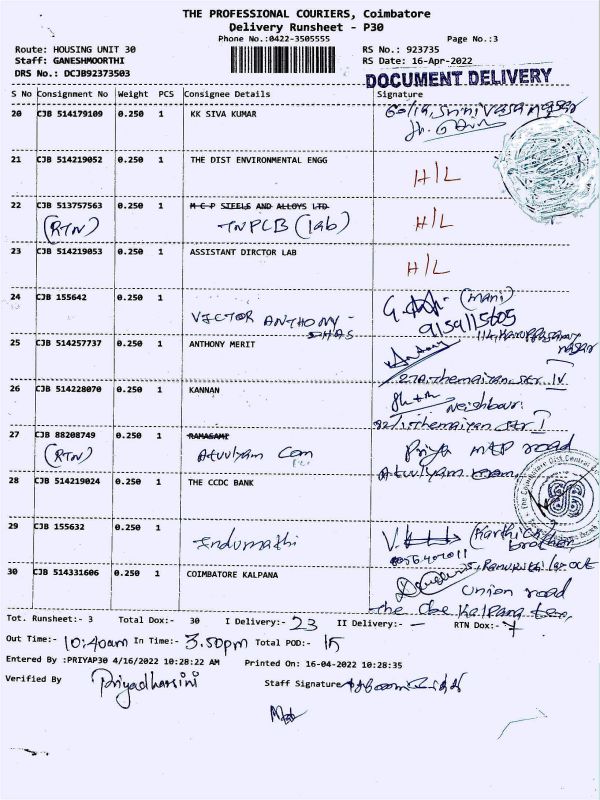 THE PROFESSIONAL COURIERS, Coimbatore
Delivery Runsheet - P30
Phone No.:0422-3505555
Page No.:3
Route: HOUSING UNIT 30
RS No.: 923735
Staff: GANESHMOORTHI
RS Date: 16-Apr-2022
DRS No.: DCJB92373503
DOCUMENT DELIVERY
S No Consignment No Weight PCS Consignee Details Signature
20 CJB 514179109 0.250 1 KK SIVA KUMAR
21 CJB 514219052 0.250 1 THE DIST ENVIRONMENTAL ENGG H/L
22 CJB 513757563 0.250 1 M C P STEELS AND ALLOYS LTD H/L
(RTN) TNPCB (lab)
23 CJB 514219053 0.250 1 ASSISTANT DIRCTOR LAB H/L
24 CJB 155642 0.250 1 (mani)
VICTOR ANTHONY- 9159115605
25 CJB 514257737 0.250 1 ANTHONY MERIT
26 CJB 514228070 0.250 1 KANNAN
Neighbour
27 CJB 88208749 0.250 1 RAMASAMI
(RTN) Priya road
28 CJB 514219024 0.250 1 THE CCDC BANK
29 CJB 155632 0.250 1
Indumathi
30 CJB 514331606 0.250 1 COIMBATORE KALPANA
Union road
Tot. Runsheet:- 3 Total Dox:- 30 I Delivery:- 23 II Delivery:- - RTN Dox:- 7
Out Time:- 10:40am In Time:- 3.50pm Total POD:- 15
Entered By :PRIYAP30 4/16/2022 10:28:22 AM Printed On: 16-04-2022 10:28:35
Verified By Priyadharsini Staff Signature